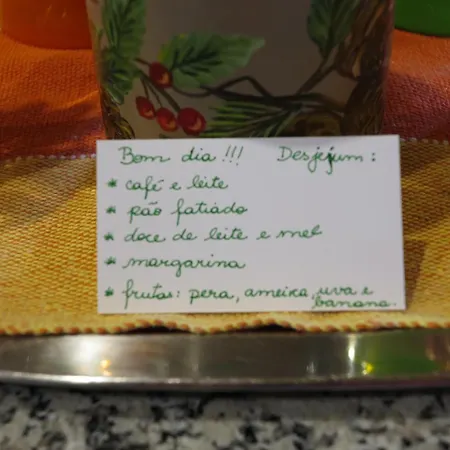 Bom dia !!! Desjejum :
* café e leite
* pão fatiado
* doce de leite e mel
* margarina
* frutas: pera, ameixa, uva e
banana.